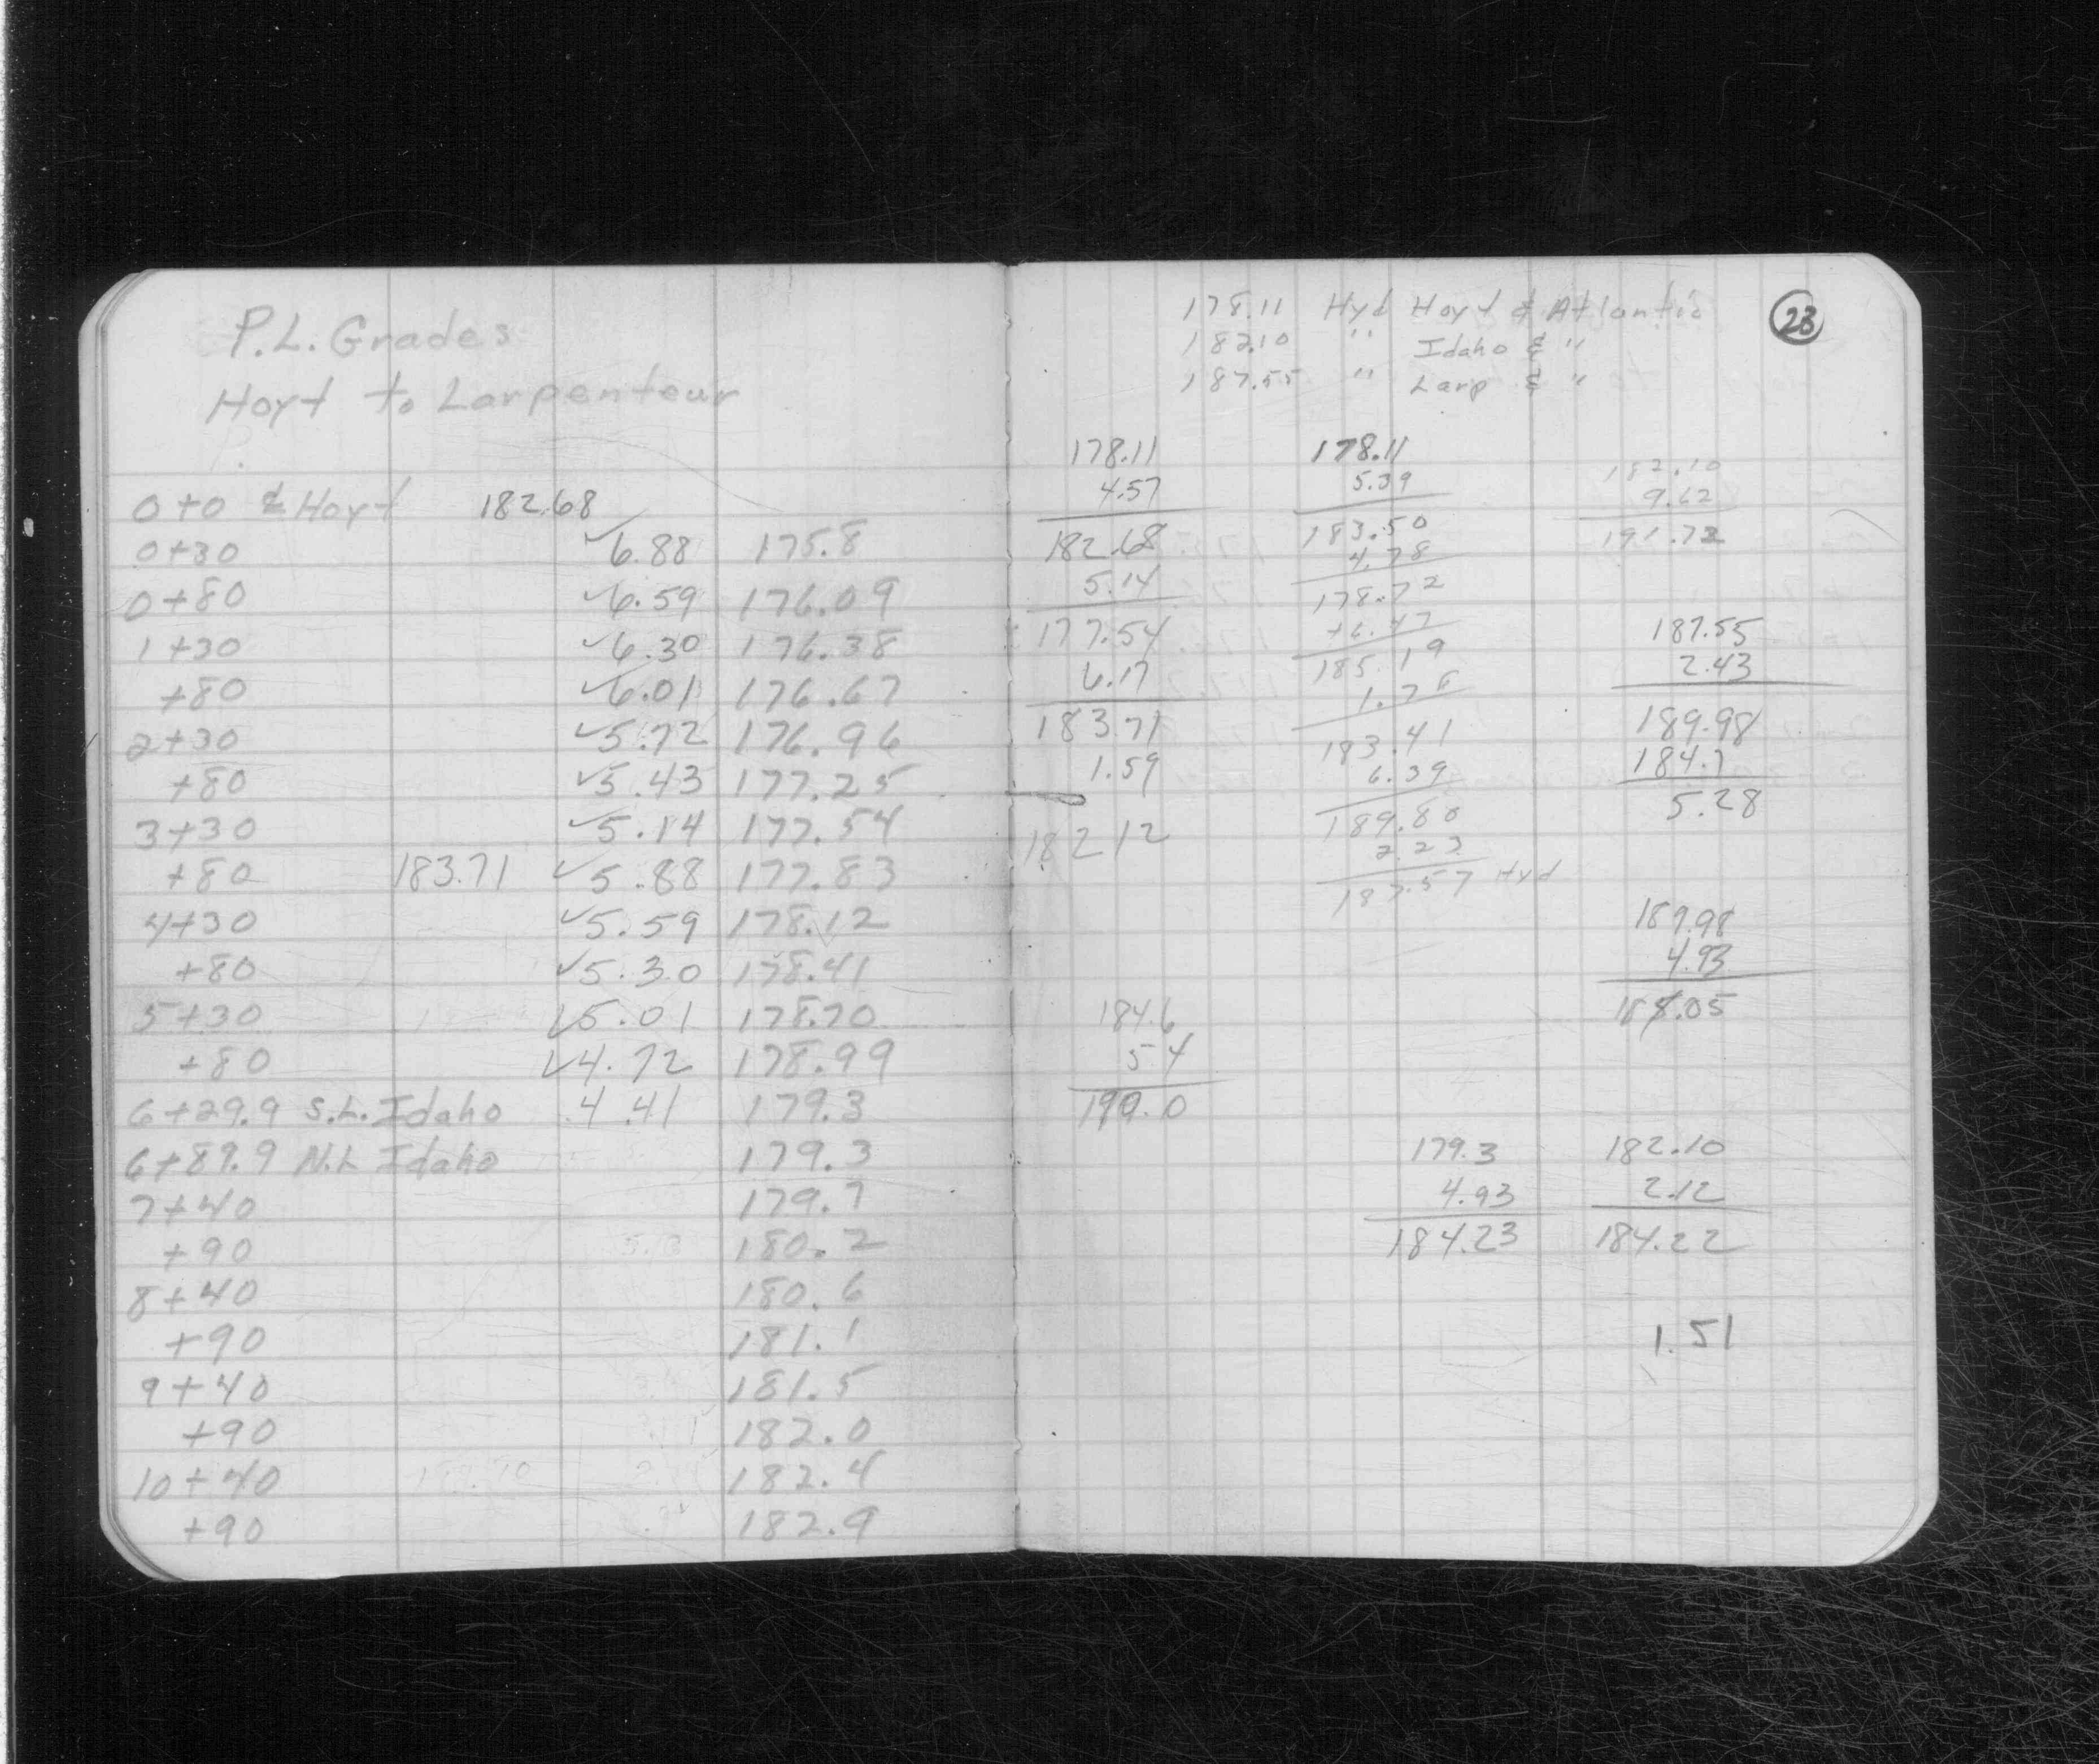 P.L. Grades
Hoyt to Larpenteur
0+0 ⅊ Hoyt 182.68
0+30 ✓6.88 175.8
0+80 ✓6.59 176.09
1+30 ✓6.30 176.38
+80 ✓6.01 176.67
2+30 ✓5.72 176.96
+80 ✓5.43 177.25
3+30 ✓5.14 177.54
+80 183.71 ✓5.88 177.83
4+30 ✓5.59 178.12
+80 ✓5.30 178.41
5+30 ✓5.01 178.70
+80 ✓4.72 178.99
6+29.9 S.L. Idaho 4.41 179.3
6+89.9 N.L Idaho 179.3
7+40 179.7
+90 180.2
8+40 180.6
+90 181.1
9+40 181.5
+90 182.0
10+40 182.4
+90 182.9
23
178.11 Hyd Hoyt & Atlantic
182.10 " Idaho & "
187.55 " Larp & "
178.11
4.57
182.68
5.14
177.54
6.17
183.71
1.59
182 12
184.6
5 4
190.0
178.11
5.39
183.50
4.78
178.72
+6.47
185.19
1.78
183.41
6.39
189.80
2.23
187.57 Hyd
182.10
9.62
191.72
187.55
2.43
189.98
184.7
5.28
189.98
4.93
185.05
179.3
4.93
184.23
182.10
2.12
184.22
1.51